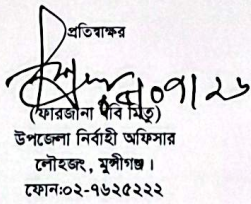 প্রতিস্বাক্ষর
০৭/২৬
(ফারজানা ববি মিতু)
উপজেলা নির্বাহী অফিসার
লৌহজং, মুন্সীগঞ্জ।
ফোন:০২-৭৬২৫২২২